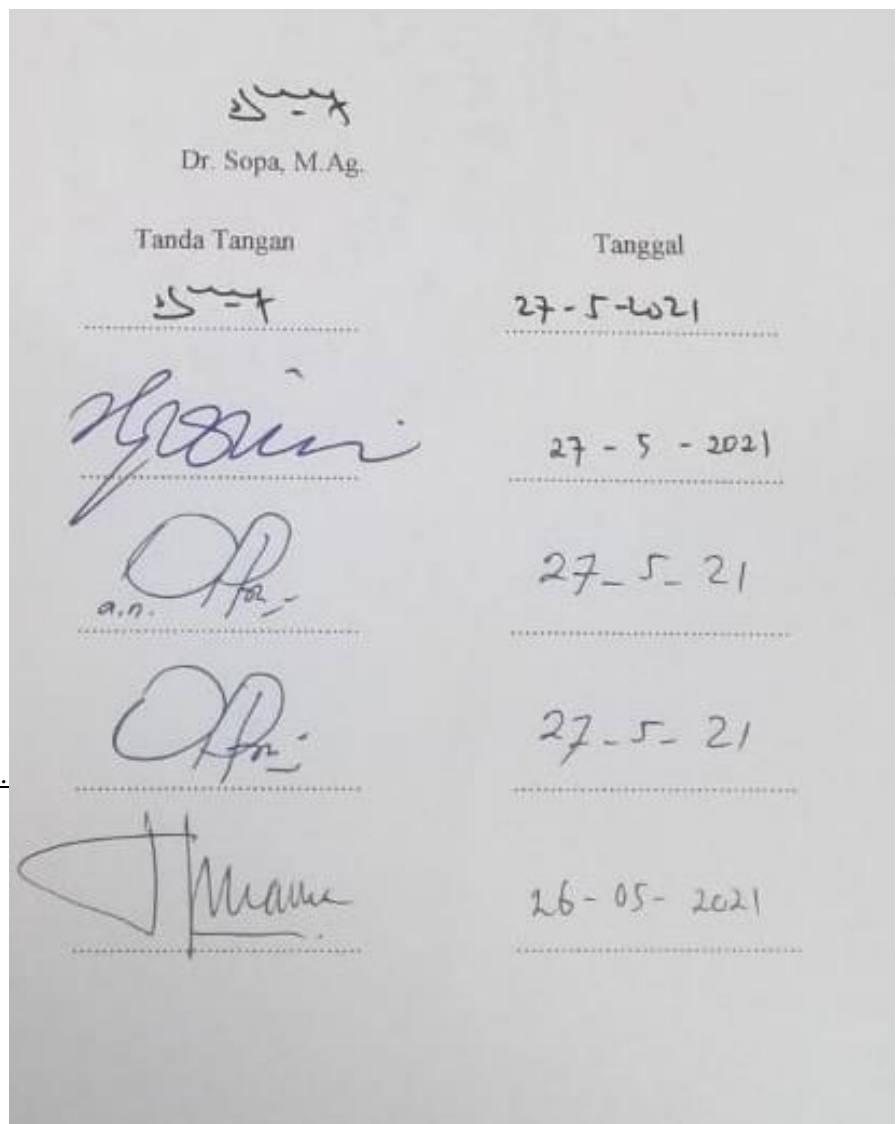 Dr. Sopa, M.Ag.
Tanda Tangan Tanggal
27-5-2021
27 - 5 - 2021
a.n. 27-5-21
27-5-21
26-05-2021